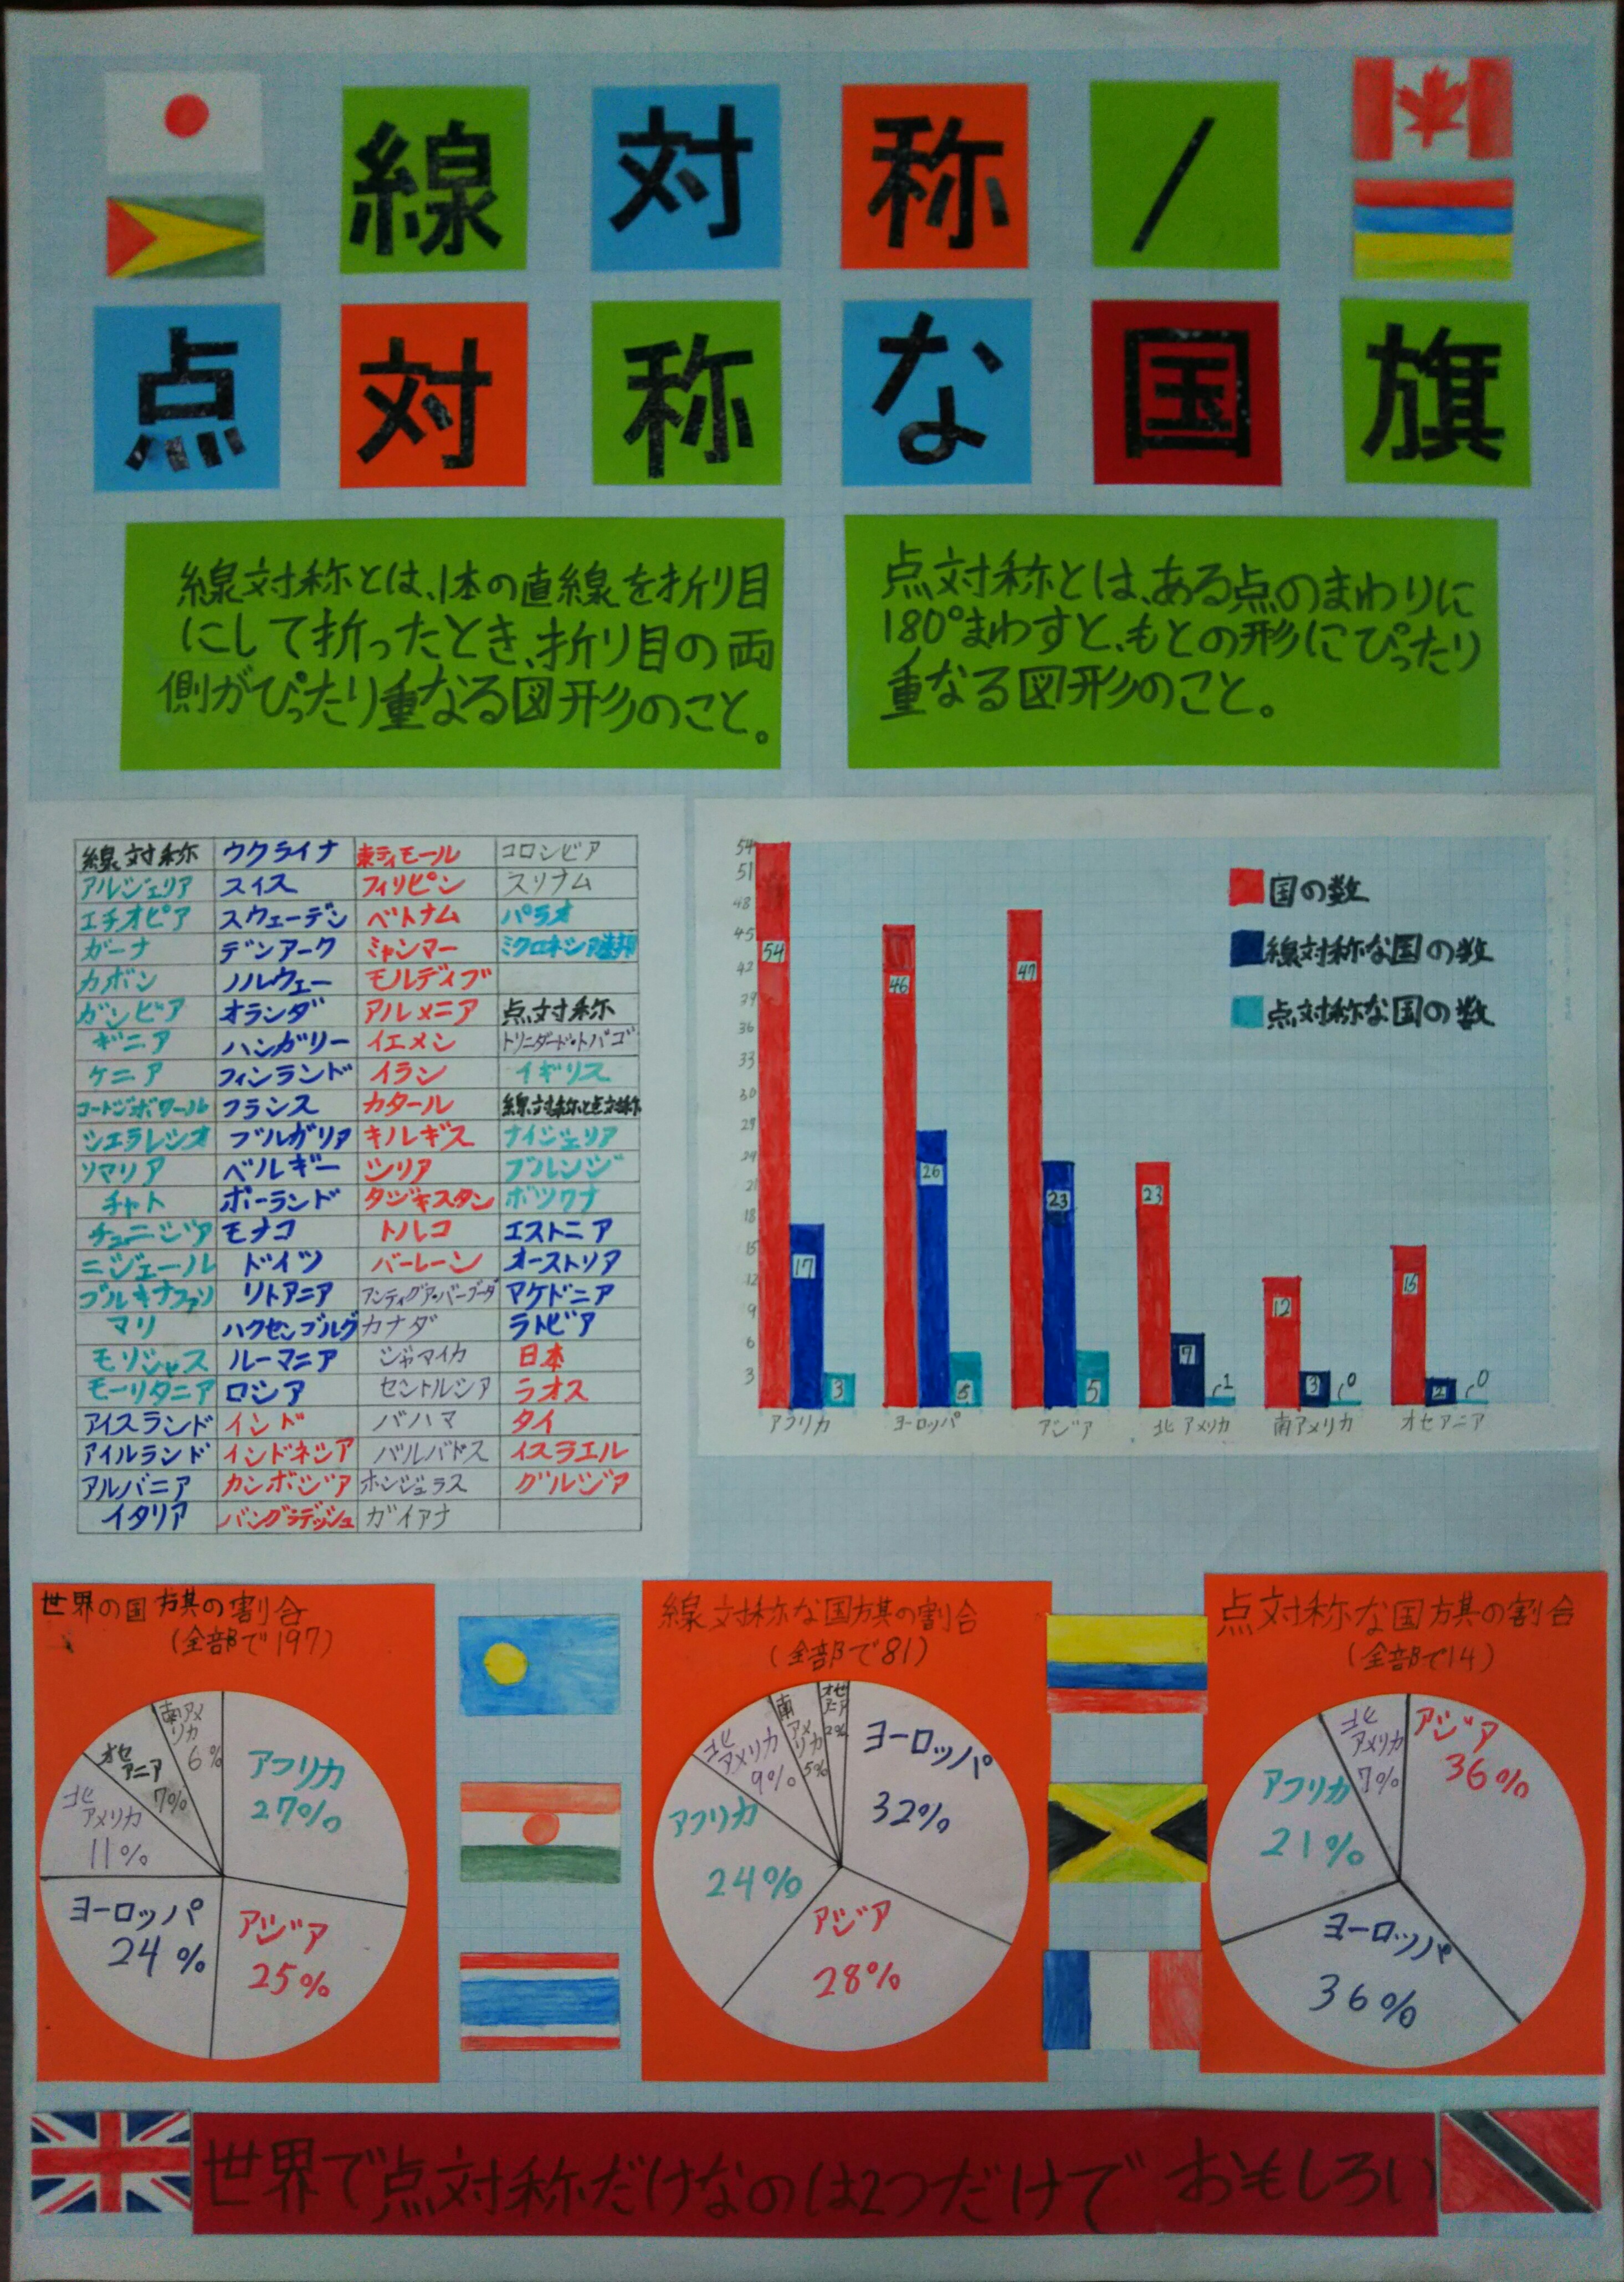 線対称/
点対称な国旗
線対称とは、1本の直線を折り目
にして折ったとき、折り目の両
側がぴったり重なる図形のこと。
点対称とは、ある点のまわりに
180°まわすと、もとの形にぴったり
重なる図形のこと。
線対称 ウクライナ 東ティモール コロンビア
アルジェリア スイス フィリピン スリナム
エチオピア スウェーデン ベトナム パラオ
ガーナ デンアーク ミャンマー ミクロネシア連邦
カボン ノルウェー モルディブ
ガンビア オランダ アルメニア 点対称
ギニア ハンガリー イエメン トリニダード・トバゴ
ケニア フィンランド イラン イギリス
コートジボワール フランス カタール 線対称と点対称
シエラレシオ ブルガリア キルギス ナイジェリア
ソマリア ベルギー シリア ブルンジ
チャト ポーランド タジキスタン ボツワナ
チュニジア モナコ トルコ エストニア
ニジェール ドイツ バーレーン オーストリア
ブルキナファソ リトアニア アンティグア・バーブーダ マケドニア
マリ ハクセンブルグ カナダ ラトビア
モリシャス ルーマニア ジャマイカ 日本
モーリタニア ロシア セントルシア ラオス
アイスランド インド バハマ タイ
アイルランド インドネシア バルバドス イスラエル
アルバニア カンボジア ホンジュラス グルジア
イタリア バングラデッシュ ガイアナ
国の数
線対称な国の数
点対称な国の数
54
51
48
45
42
39
36
33
30
27
24
21
18
15
12
9
6
3
54 17 3
46 26 5
47 23 5
23 7 1
12 3 0
15 2 0
アフリカ ヨーロッパ アジア 北アメリカ 南アメリカ オセアニア
世界の国旗の割合
(全部で197)
アフリカ
27%
アジア
25%
ヨーロッパ
24%
北
アメリカ
11%
オセ
アニア
7%
南アメ
リカ
6%
線対称な国旗の割合
(全部で81)
ヨーロッパ
32%
アジア
28%
アフリカ
24%
北
アメリカ
9%
南
アメ
リカ
5%
オセ
アニア
2%
点対称な国旗の割合
(全部で14)
アジア
36%
ヨーロッパ
36%
アフリカ
21%
北
アメリカ
7%
世界で点対称だけなのは2つだけで おもしろい